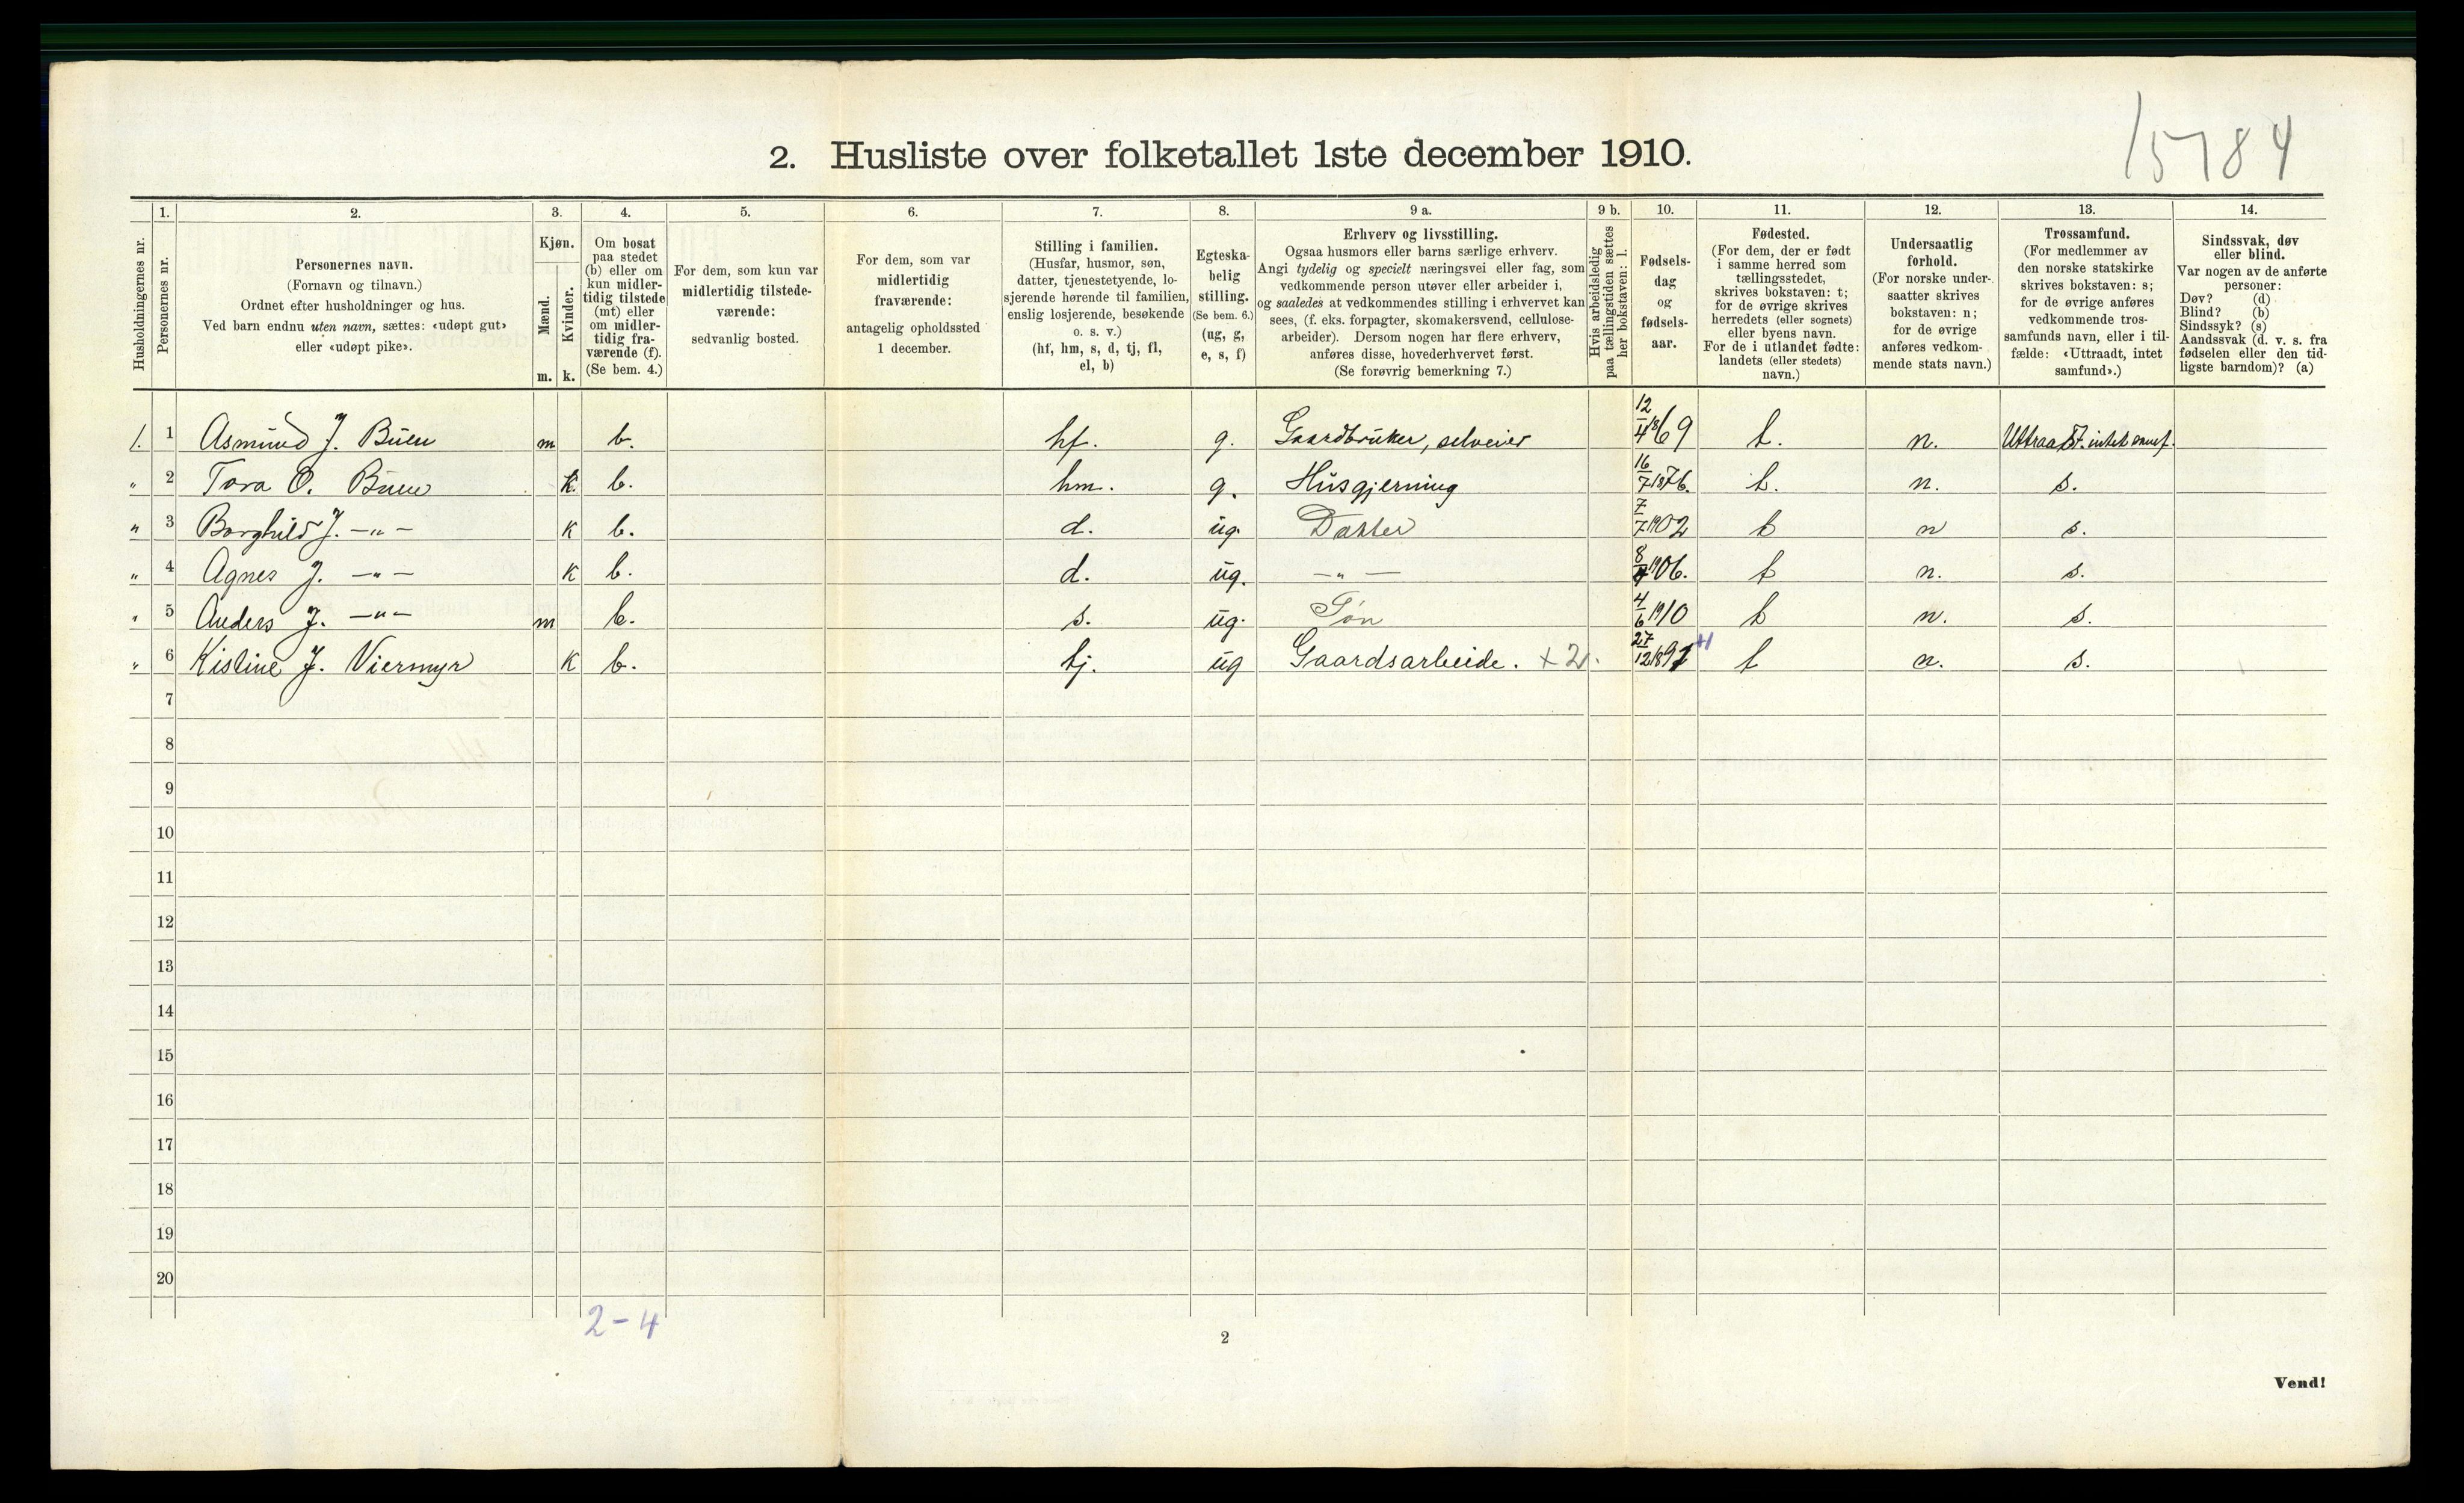 15784
2. Husliste over folketallet 1ste december 1910.
1. 2. 3. 4. 5. 6. 7. 8. 9 a. 9 b. 10. 11. 12. 13. 14.
Husholdningernes nr.
Personernes nr.
Personernes navn.
(Fornavn og tilnavn.)
Ordnet efter husholdninger og hus.
Ved barn endnu uten navn, sættes: «udøpt gut»
eller «udøpt pike».
Kjøn.
Mænd.
Kvinder.
m. k.
Om bosat
paa stedet
(b) eller om
kun midler-
tidig tilstede
(mt) eller
om midler-
tidig fra-
værende (f).
(Se bem. 4.)
For dem, som kun var
midlertidig tilstede-
værende:
sedvanlig bosted.
For dem, som var
midlertidig
fraværende:
antagelig opholdssted
1 december.
Stilling i familien.
(Husfar, husmor, søn,
datter, tjenestetyende, lo-
sjerende hørende til familien,
enslig losjerende, besøkende
o. s. v.)
(hf, hm, s, d, tj, fl,
el, b)
Egteska-
belig
stilling.
(Se bem. 6.)
(ug, g,
e, s, f)
Erhverv og livsstilling.
Ogsaa husmors eller barns særlige erhverv.
Angi tydelig og specielt næringsvei eller fag, som
vedkommende person utøver eller arbeider i,
og saaledes at vedkommendes stilling i erhvervet kan
sees, (f. eks. forpagter, skomakersvend, cellulose-
arbeider). Dersom nogen har flere erhverv,
anføres disse, hovederhvervet først.
(Se forøvrig bemerkning 7.)
Hvis arbeidsledig
paa tællingstiden sættes
her bokstaven: l.
Fødsels-
dag
og
fødsels-
aar.
Fødested.
(For dem, der er født
i samme herred som
tællingsstedet,
skrives bokstaven: t;
for de øvrige skrives
herredets (eller sognets)
eller byens navn.
For de i utlandet fødte:
landets (eller stedets)
navn.)
Undersaatlig
forhold.
(For norske under-
saatter skrives
bokstaven: n;
for de øvrige
anføres vedkom-
mende stats navn.)
Trossamfund.
(For medlemmer av
den norske statskirke
skrives bokstaven: s;
for de øvrige anføres
vedkommende tros-
samfunds navn, eller i til-
fælde: «Uttraadt, intet
samfund».)
Sindssvak, døv
eller blind.
Var nogen av de anførte
personer:
Døv? (d)
Blind? (b)
Sindssyk? (s)
Aandssvak (d. v. s. fra
fødselen eller den tid-
ligste barndom)? (a)
1. 1 Asmund J. Buen m b. hf. g. Gaardbruker, selveier 12/4 1869 t. n. Uttraadt. intet samf.
" 2 Tora O. Buen k. b. hm. g. Husgjerning 16/7 1876. t. n. s.
" 3 Borghild J. -"- k b. d. ug. Datter 7/7 1902 t n s.
" 4 Agnes J. -"- k b. d. ug. -"- 8/ 1906. t n. s.
" 5 Anders J. -"- m b. s. ug. Søn 4/6 1910 t n. s.
" 6 Kistine J. Viermyr k b. tj. ug Gaardsarbeide. +2. 27/12 1891 t n. s.
7
8
9
10
11
12
13
14
15
16
17
18
19
20
2-4
2
Vend!